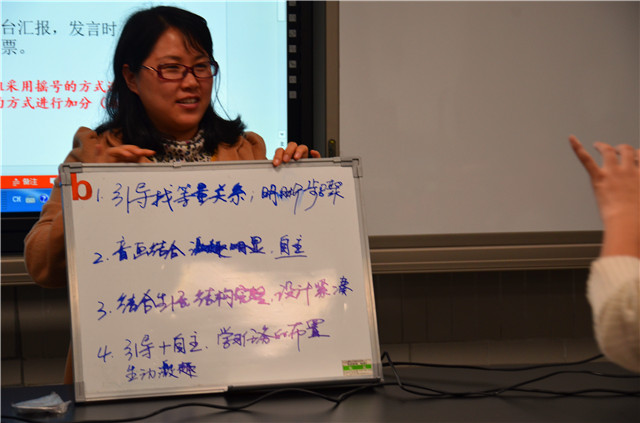 台汇报，发言时
票。
采用摇号的方式
方式进行加分（
备注
CH
b
1. 引导找等量关系；明晰步骤
2. 音画结合 激趣明显. 自主
3. 结合生活 结构完整. 设计紧凑
4. 引导+自主. 学习任务的布置
生动激趣